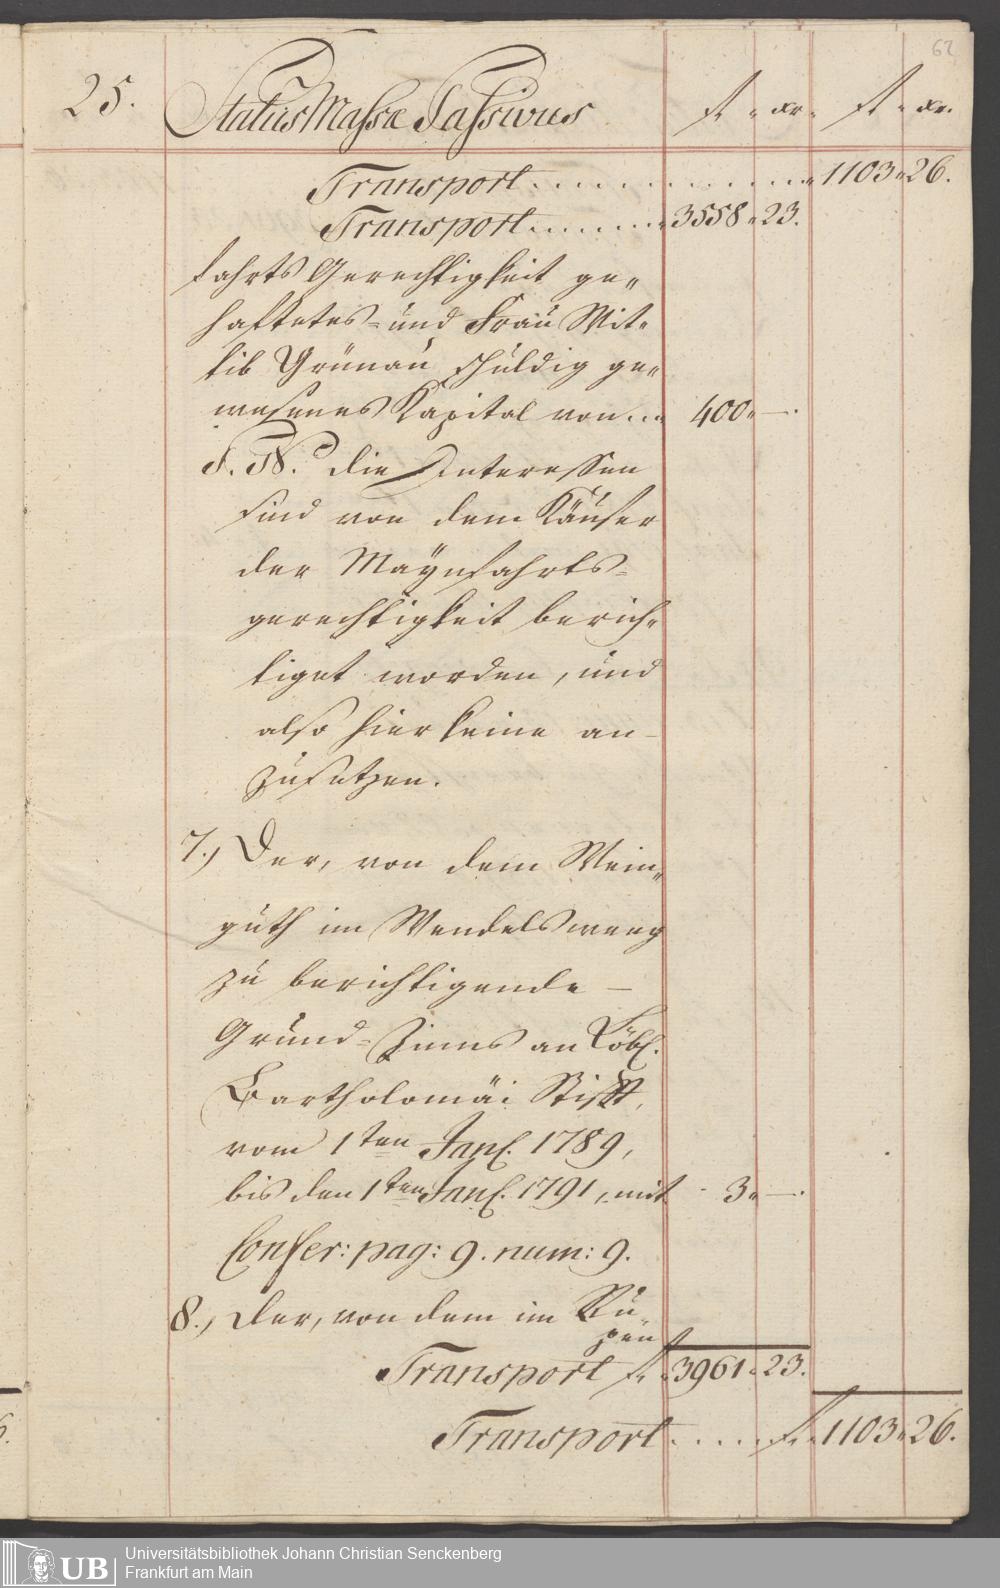 62
25. Status Massæ Passivus fl xr. fl xr.
Transport . . . . . . . . . . . . 1103 26.
Transport . . . . . . . 3558 23.
fahrts Gerechtigkeit ge„
haftetes- und Frau Wit„
tib Grünau schuldig ge„
wesenes Kapital von . . . 400 —.
P. N. die Interessen
sind von dem Käufer
der Maÿnfahrts-
gerechtigkeit berich„
tiget worden, und
also hier keine an-
zusetzen.
7.) Der, von dem Wein„
guth im Wendelsweeg
zu berichtigende —
Grund-Zinns an Löbl.
Bartholomäi Stifft,
vom 1ten Jan. 1789,
bis den 1ten Jan. 1791, mit - 3 —.
Confer: pag: 9. num: 9.
8.) Der, von dem im
Transport fl 3961 23.
Transport . . . . . fl 1103 26.
UB Universitätsbibliothek Johann Christian Senckenberg
Frankfurt am Main